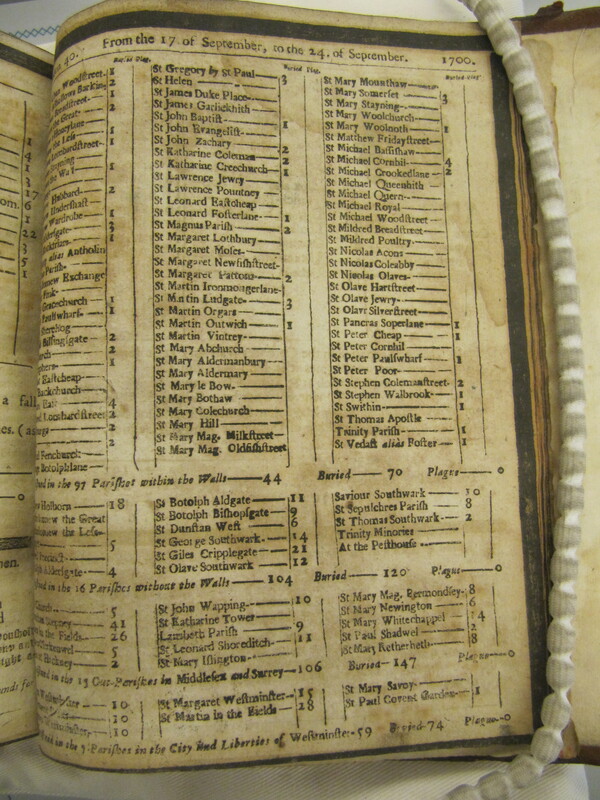 40. From the 17. of September, to the 24. of September. 1700.
Buried Plag.
Woodstreet. 1
Barking 2
1
2
1
1
1
Hubbard 2
Undershaft
Wardrobe 1
3
1
alias Antholin
Parish
Exchange
Gracechurch 1
Paulswharf 1
Billingsgate 2
2
1
Eastcheap
4
Lombardstreet 2
2
Fenchurc
Botolphlane
St Gregory by St Paul 3
St Helen
St James Duke Place
St James Garlickhith
St John Baptist
St John Evangelist 1
St John Zachary
St Katharine Coleman 2
St Katharine Creechurch 1
St Lawrence Jewry
St Lawrence Pountney
St Leonard Eastcheap
St Leonard Fosterlane 1
St Magnus Parish 2
St Margaret Lothbury
St Margaret Moses
St Margaret Newfishstreet
St Margaret Pattons 2
St Martin Ironmongerlane
St Martin Ludgate 3
St Martin Orgars
St Martin Outwich 1
St Martin Vintrey
St Mary Abchurch
St Mary Aldermanbury
St Mary Aldermary
St Mary le Bow
St Mary Bothaw
St Mary Colechurch
St Mary Hill
St Mary Mag. Milkstreet
St Mary Mag. Oldfishstreet
St Mary Mounthaw
St Mary Somerset 3
St Mary Stayning
St Mary Woolchurch
St Mary Woolnoth 1
St Matthew Fridaystreet
St Michael Bassishaw
St Michael Cornhil 4
St Michael Crookedlane 2
St Michael Queenhith
St Michael Quern
St Michael Royal
St Michael Woodstreet
St Mildred Breadstreet
St Mildred Poultry
St Nicolas Acons
St Nicolas Coleabby
St Nicolas Olaves
St Olave Hartstreet
St Olave Jewry
St Olave Silverstreet
St Pancras Soperlane 1
St Peter Cheap 1
St Peter Cornhil
St Peter Paulswharf 1
St Peter Poor
St Stephen Colemanstreet 2
St Stephen Walbrook 1
St Swithin 1
St Thomas Apostle
Trinity Parish 1
St Vedast alias Foster 1
in the 97 Parishes within the Walls 44 Buried 70 Plague 0
Holborn 18
the Great
the Less
5
Aldersgate 4
St Botolph Aldgate 11
St Botolph Bishopsgate 9
St Dunstan West 6
St George Southwark 14
St Giles Cripplegate 21
St Olave Southwark 12
Saviour Southwark 10
St Sepulchres Parish 8
St Thomas Southwark 2
Trinity Minories
At the Pesthouse
in the 16 Parishes without the Walls 104 Buried 120 Plague 0
5
41
in the Fields 26
5
Hackney 2
St John Wapping 10
St Katharine Tower
Lambeth Parish 9
St Leonard Shoreditch 11
St Mary Islington
St Mary Mag. Bermondsey 8
St Mary Newington 6
St Mary Whitechappel 14
St Paul Shadwel 2
St Mary Retherheth 8
in the 15 Out-Parishes in Middlesex and Surrey 106 Buried 147 Plague 0
10
10
10
St Margaret Westminster 15
St Martin in the Fields 28
St Mary Savoy
St Paul Covent Garden 1
in the 7 Parishes in the City and Liberties of Westminster 59 Buried 74 Plague 0